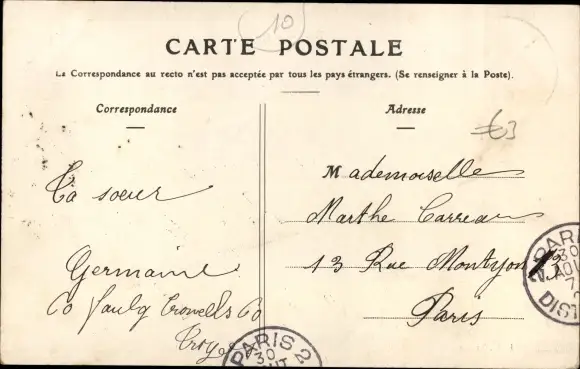 10
CARTE POSTALE
La Correspondance au recto n'est pas acceptée par tous les pays étrangers. (Se renseigner à la Poste).
Correspondance
Ta soeur
Germaine
Adresse
€3
Mademoiselle
Marthe Carreau
13 Rue Montyon
Paris
PARIS 2
30
PARIS
30
DIST